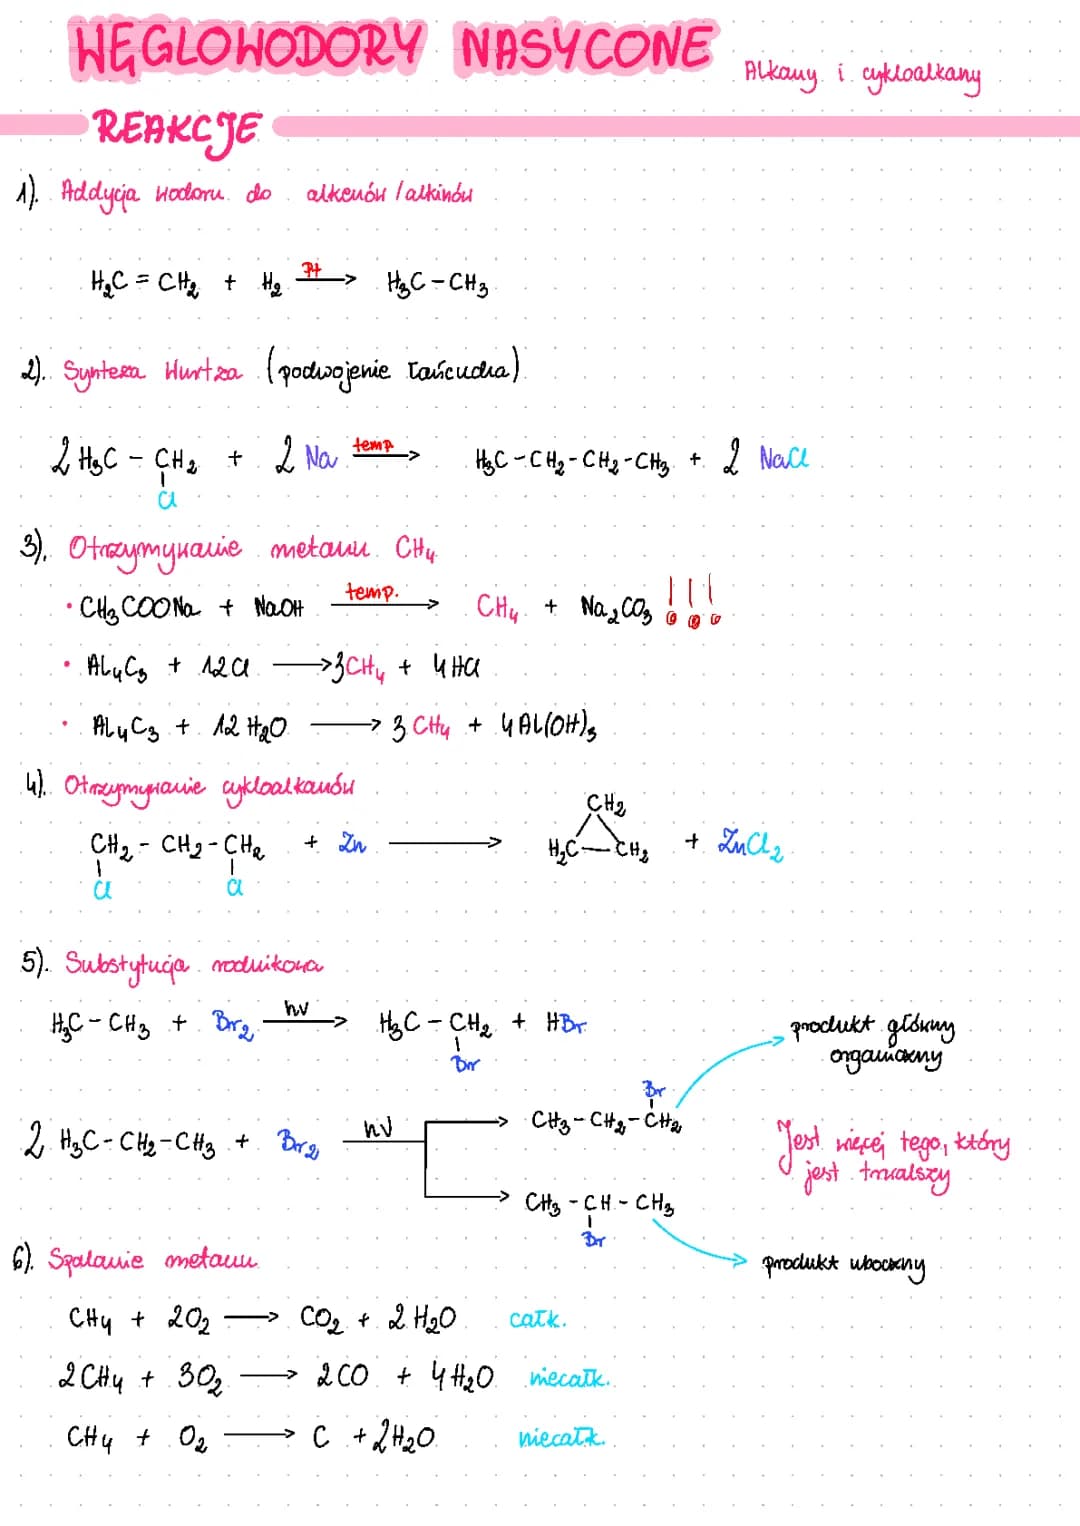 WĘGLOWODORY NASYCONE
Alkany i cykloalkany
REAKCJE
1). Addycja wodoru do alkenów / alkinów
H₂C = CH₂ + H₂ —Pt→ H₃C - CH₃
2). Synteza Wurtza (podwojenie łańcucha)
2 H₃C - CH₂ + 2 Na —temp→ H₃C - CH₂ - CH₂ - CH₃ + 2 NaCl
Cl
3). Otrzymywanie metanu CH₄
• CH₃COONa + NaOH —temp.→ CH₄ + Na₂CO₃ !!!
• Al₄C₃ + 12Cl → 3CH₄ + 4HCl
• Al₄C₃ + 12 H₂O → 3 CH₄ + 4 Al(OH)₃
4). Otrzymywanie cykloalkanów
CH₂
CH₂ - CH₂ - CH₂ + Zn → H₂C — CH₂ + ZnCl₂
Cl Cl
5). Substytucja rodnikowa
H₃C - CH₃ + Br₂ —hν→ H₃C - CH₂ + HBr
Br
produkt główny
organiczny
Br
2 H₃C - CH₂ - CH₃ + Br₂ —hν→ CH₃ - CH₂ - CH₂
Jest więcej tego, który
jest trwalszy
CH₃ - CH - CH₃
Br
produkt uboczny
6). Spalanie metanu
CH₄ + 2O₂ → CO₂ + 2 H₂O całk.
2CH₄ + 3O₂ → 2CO + 4H₂O niecałk.
CH₄ + O₂ → C + 2H₂O niecałk.